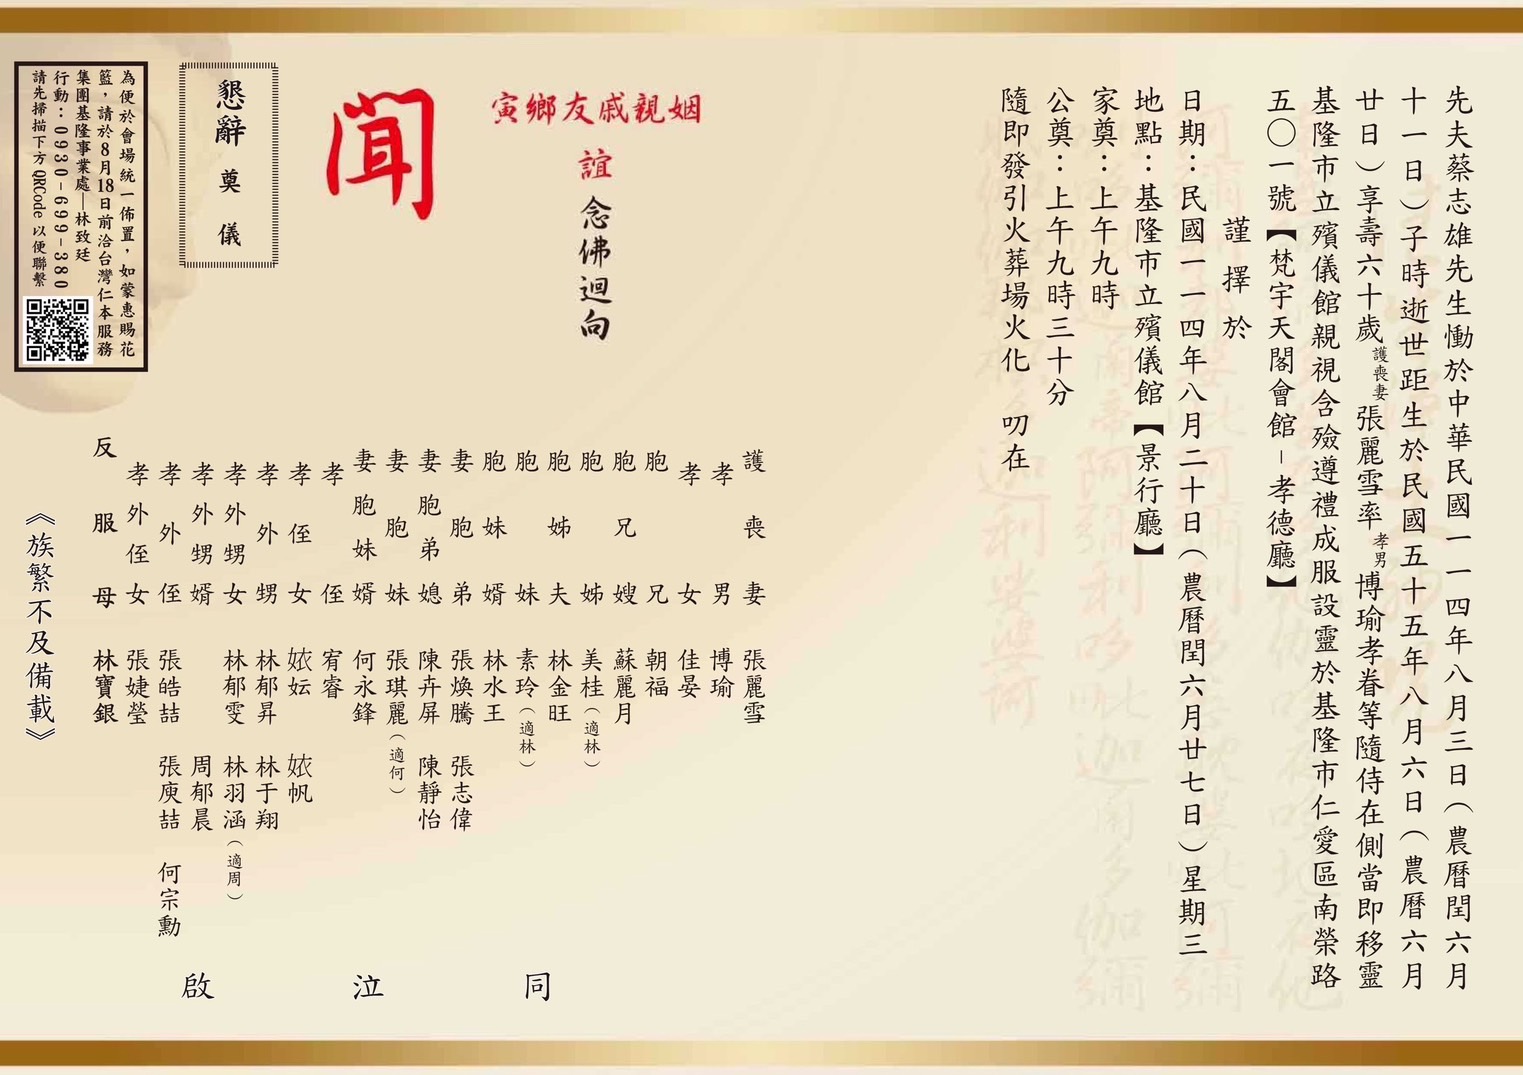 先夫蔡志雄先生慟於中華民國一一四年八月三日（農曆閏六月
十一日）子時逝世距生於民國五十五年八月六日（農曆六月
廿日）享壽六十歲護喪妻張麗雪率孝男博瑜孝眷等隨侍在側當即移靈
基隆市立殯儀館親視含殮遵禮成服設靈於基隆市仁愛區南榮路
五〇一號【梵宇天閣會館－孝德廳】
謹擇於
日期：民國一一四年八月二十日（農曆閏六月廿七日）星期三
地點：基隆市立殯儀館【景行廳】
家奠：上午九時
公奠：上午九時三十分
隨即發引火葬場火化　叨在
姻親戚友鄉寅
誼 念佛迴向
聞
懇辭 奠儀
為便於會場統一佈置，如蒙惠賜花
籃，請於8月18日前洽台灣仁本服務
集團基隆事業處—林致廷
行動：0930-699-380
請先掃描下方QRCode以便聯繫
護喪妻 張麗雪
孝男 博瑜
孝女 佳晏
胞兄 朝福
胞兄嫂 蘇麗月
胞姊 美桂（適林）
胞姊夫 林金旺
胞妹 素玲（適林）
胞妹婿 林水王
妻胞弟 張煥騰 張志偉
妻胞弟媳 陳卉屏 陳靜怡
妻胞妹 張琪麗（適何）
妻胞妹婿 何永鋒
孝侄 宥睿
孝侄女 㛄妘 㛄帆
孝外甥 林郁昇 林于翔
孝外甥女 林郁雯 林羽涵（適周）
孝外甥婿 周郁晨
孝外侄 張皓喆 張庾喆 何宗勳
孝外侄女 張婕瑩
反服母 林寶銀
同泣啟
《族繁不及備載》